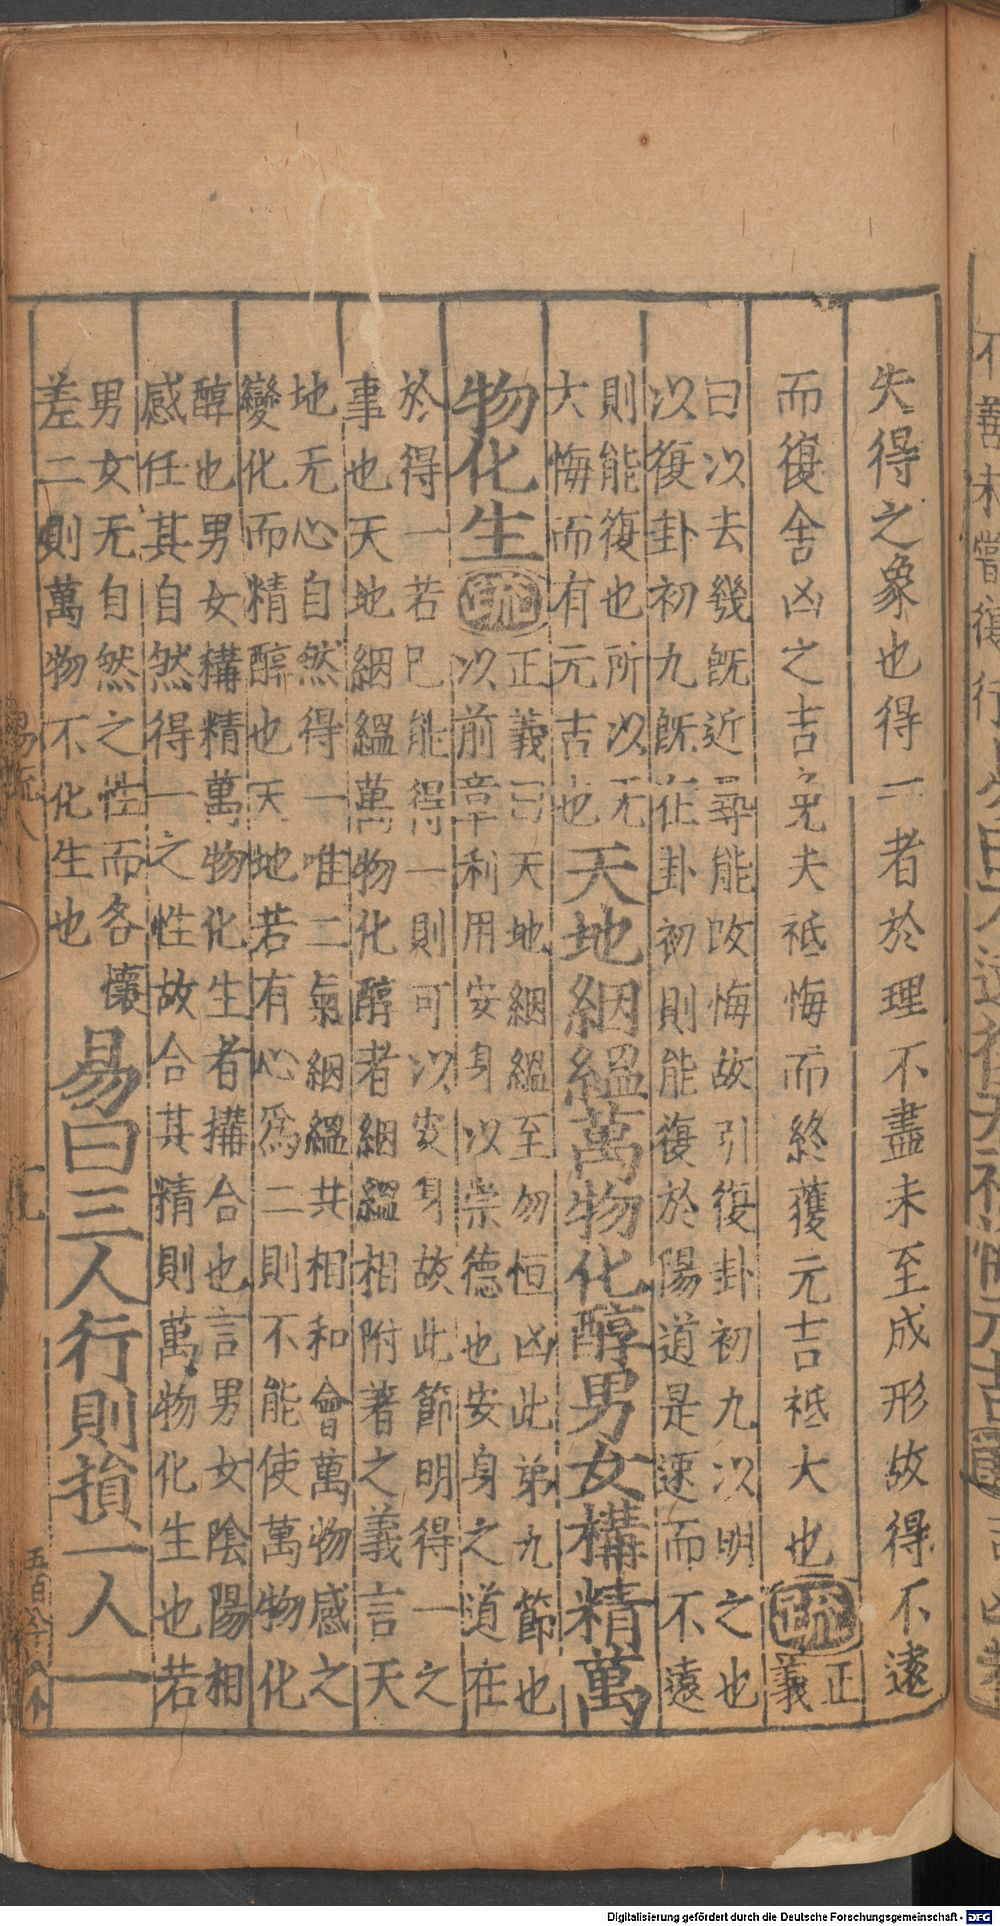 失得之象也得一者於理不盡未至成形故得不遠
而復舍凶之吉免夫祗悔而終獲元吉祗大也疏正義
曰以去幾既近尋能改悔故引復卦初九以明之也
以復卦初九既在卦初則能復於陽道是速而不遠
則能復也所以无
大悔而有元吉也
天地絪縕萬物化醇男女構精萬
物化生疏
正義曰天地絪縕至勿恒凶此弟九節也
以前章利用安身以崇德也安身之道在
於得一若已能得一則可以安身故此節明得一之
事也天地絪縕萬物化醇者絪縕相附著之義言天
地无心自然得一唯二氣絪縕共相和會萬物感之
變化而精醇也天地若有心爲二則不能使萬物化
醇也男女構精萬物化生者搆合也言男女陰陽相
感任其自然得一之性故合其精則萬物化生也若
男女无自然之性而各懷
差二則萬物不化生也
易曰三人行則損一人一
易疏八
十九
五百八十八个
Digitalisierung gefördert durch die Deutsche Forschungsgemeinschaft - DFG